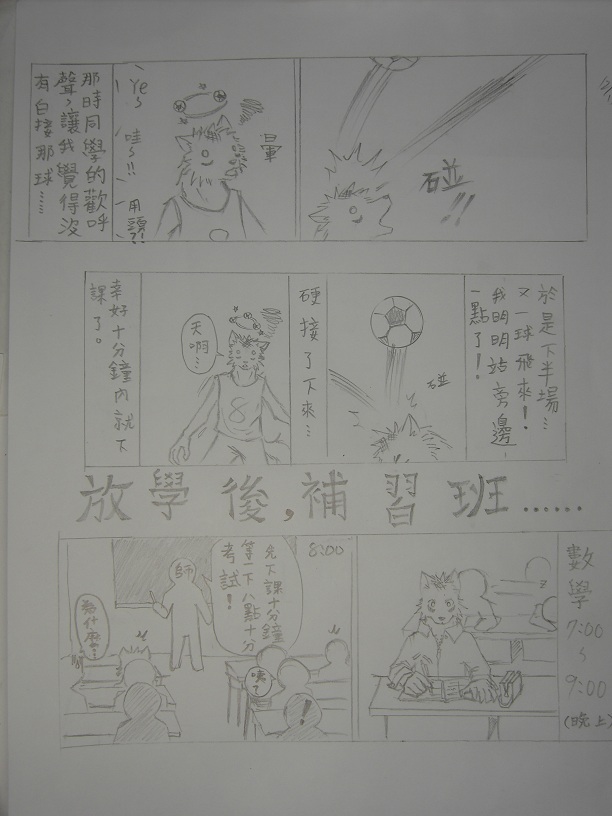 碰!!
暈
Ye~ 哇~!! 用頭?!
那時同學的歡呼
聲,讓我覺得沒
有白接那球……
於是下半場…
又一球飛來!
我明明站旁邊
一點了!
碰
硬接了下來…
天
啊…
8
幸好十分鐘內就下
課了。
放學後,補習班……
數學
7:00
~
9:00
(晚上)
8:00
先下課十分鐘
等一下八點十分
考試!
師
為什麼…
咦?
!